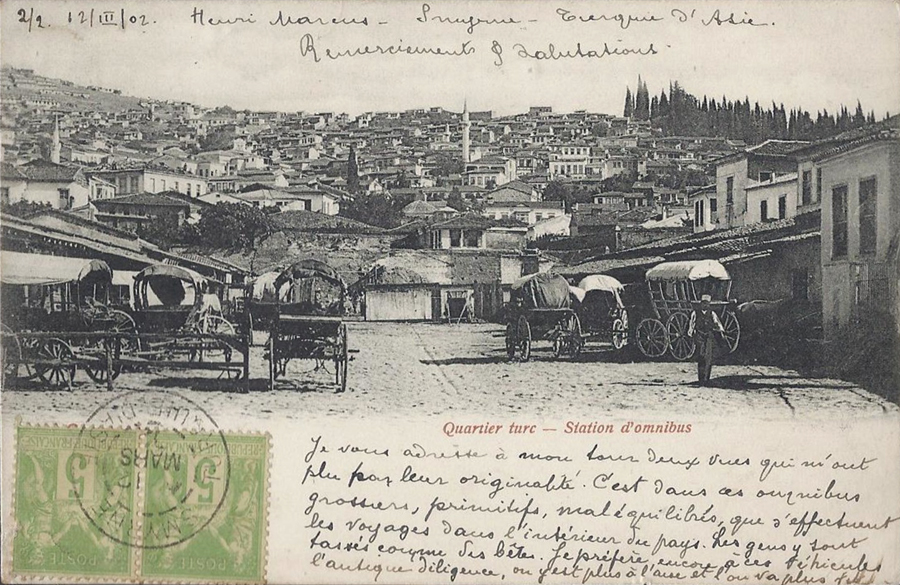 2/2 12/III/02. Henri Marcus - Smyrne - Turquie d'Asie.
Remerciements & salutations.
Quartier turc — Station d'omnibus
Je vous adresse à mon tour deux vues qui m'ont
plu par leur originalité. C'est dans ces omnibus
grossiers, primitifs, mal équilibrés, que s'effectuent
les voyages dans l'intérieur du pays. Les gens y sont
tassés comme des bêtes. Je préfère encore à ces véhicules
l'antique diligence, on y est plus à l'aise et l'on va plus
REPUBLIQUE FRANÇAISE
5 5
POSTE POSTE
SMYRNE
MARS